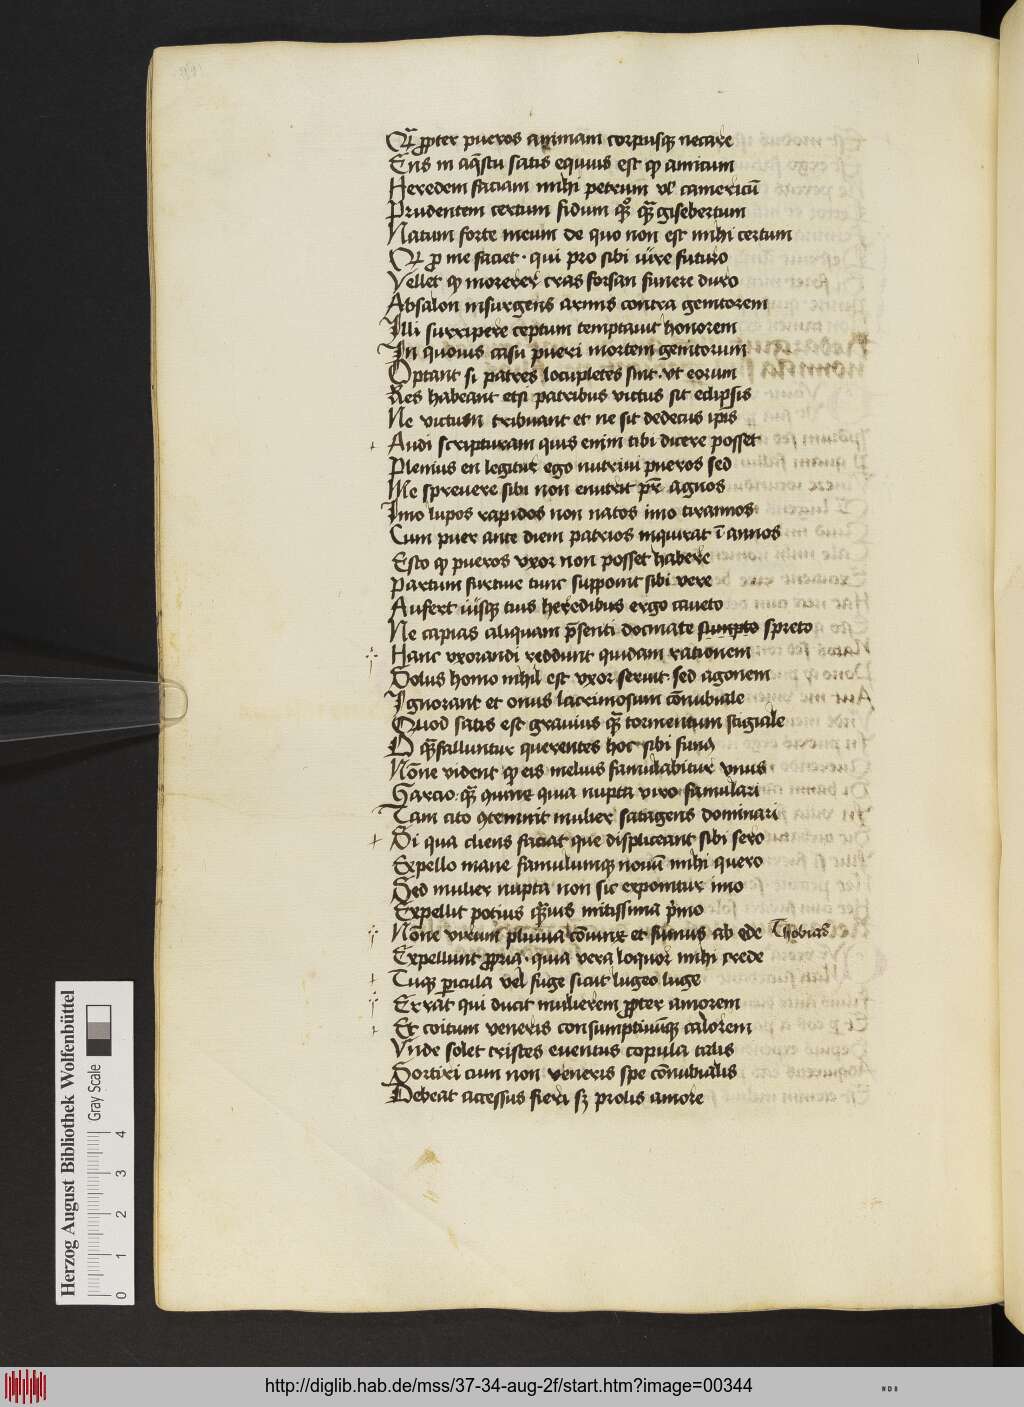 Qr̄ ꝓpter pueros animam corpusqꝫ necare
Ens in aq̄stu satis equius est ꝙ amicum
Heredem faciam mihi petrum vl camericū
Prudentem certum fidum qꝫ q̄ gisebertum
Natum forte meum de quo non est mihi certum
Qr̄ ꝓ me faciet · qui pro sibi iure futuro
Vellet ꝙ morerer cras forsan funere duro
Absalon insurgens armis contra genitorem
Illi surripere ceptum temptauit honorem
In quouis casu pueri mortem genitorum
Optant si patres locupletes sint · vt eorum
Res habeant etsi patribus victus sit eclipsis
Ne victum tribuant et ne sit dedecus ip̄is
Audi scripturam quis enim tibi dicere posset
Plenius en legitur ego nutriui pueros sed
Me spreuere sibi non enutrit pr̄ agnos
Imo lupos rapidos non natos imo tirannos
Cum puer ante diem patrios inquirat ī annos
Esto ꝙ pueros vxor non posset habere
Partum furtiue tunc supponit sibi vere
Aufert iusqꝫ tuis heredibus ergo caueto
Ne capias aliquam p̄senti docmate sumpto spreto
Hanc vxorandi reddunt quidam rationem
Solus homo nihil est vxor seruit · sed agonem
Ignorant et onus lacrimosum cōnubiale
Quod satis est grauius q̄ tormentum stigiale
O q̄ falluntur querentes hoc sibi funus
Nōne vident ꝙ eis melius famulabitur vnus
Garcio · q̄ quia nupta viro famulari
Tam cito ꝯtemnit mulier satagens dominari
Si qua cliens faciat que displiceant sibi sero
Expello mane famulumqꝫ nouū mihi quero
Sed mulier nupta non sic exponitur imo
Expellit potius q̄uis mitissima p̄mo
Nōne virum pluuia cōiunx et fumus ab ede Thobias
Expellunt ꝓpria · quia vera loquor mihi crede
Tuqꝫ ꝑicula vel fuge sicut lugeo luge
Errat qui ducit mulierem ꝓpter amorem
Et coitum veneris consumptiuūqꝫ calorem
Vnde solet tristes euentus copula talis
Sortiri cum non veneris spe cōnubialis
Debeat accessus fieri sꝫ prolis amore
Herzog August Bibliothek Wolfenbüttel
Gray Scale
0 1 2 3 4
http://diglib.hab.de/mss/37-34-aug-2f/start.htm?image=00344